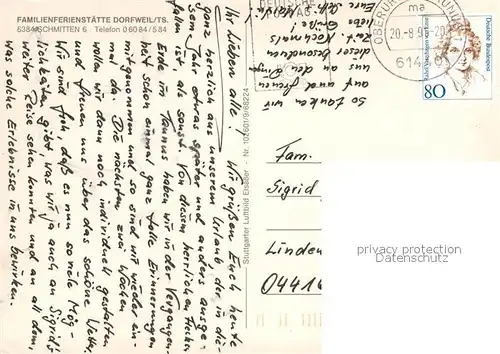 FAMILIENFERIENSTÄTTE DORFWEIL/TS.
6384 SCHMITTEN 6 Telefon 06084/584
Ihr Lieben alle! Wir grüßen Euch heute
ganz herzlich aus unserem Urlaub, der in die-
sem Jahr etwas später und anders ausge-
fallen ist als sonst. Von diesem herrlichen Flecken
Erde im Taunus haben wir in der Vergangen-
heit schon einmal ganz tolle Erinnerungen
mitgenommen und so sind wir wieder ein-
mal da. Die nächsten zwei Wochen
wollen wir dann noch individuell gestalten
und freuen uns über das schöne Wetter.
Wir sind froh, daß es nun so viele Mög-
lichkeiten gibt was wir ja auch an Sigrid's
weiter Reise sehen konnten und an all dem,
was solche Erlebnisse in uns bewirken.
So tanken wir
auf und freuen
uns an den Dingen
dieser besonderen
Zeit. Nochmals
liebe Grüße
Eure
Stuttgarter Luftbild Elsäßer - Nr. 102601/9/68224
OBERURSEL (TAUNUS)
ma
20.-8.9
614
Deutsche Bundespost
80
Fam.
Sigrid
Linden
04416
privacy protection
watermark